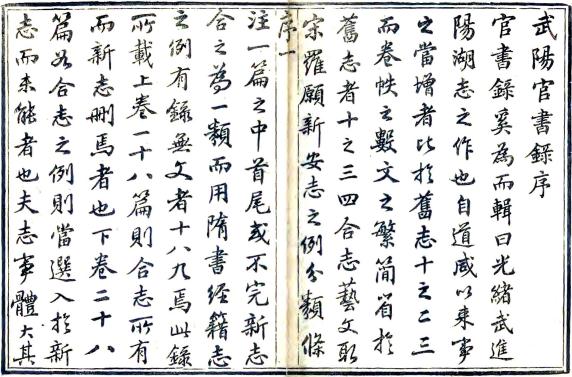 武陽官書錄序
官書錄奚為而輯曰光緒武進
陽湖志之作也自道咸以來事
之當增者比於舊志十之二三
而卷帙之數文之繁簡省於
舊志者十之三四合志藝文取
宗羅願新安志之例分類條
序一
注一篇之中首尾或不完新志
合之為一類而用隋書經籍志
之例有錄無文者十八九焉此錄
所載上卷一十八篇則合志所有
而新志刪焉者也下卷二十八
篇如合志之例則當選入於新
志而未能者也夫志事體大其